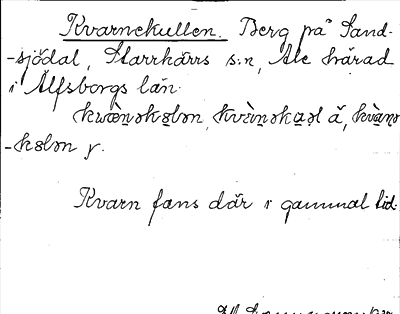 Kvarnekullen. Berg på Sand-
-sjödal, Starrkärrs s:n, Ale härad
i Älfsborgs län.
kwæ̀nəkɞlən, å,
-kɞlən y.
Kvarn fans där i gammal tid.